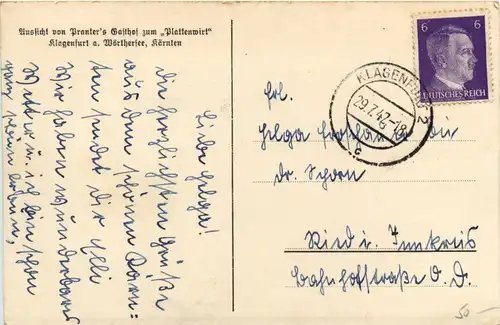 Aussicht von Pranter's Gasthof zum „Plattenwirt"
Klagenfurt a. Wörthersee, Kärnten
Liebe Helga!
Die herzlichsten Grüße
aus dem schönen Kärn=
ten sendet dir Elli
Wir haben wunderbares
Wetter u. ich bin schon
ganz braun
6 6
DEUTSCHES REICH
KLAGENFURT 2
29.7.42-18
c
Frl.
Helga bei
Dr. Schorn
Ried i. Innkreis
Bahnhofstraße O. D.
50 -